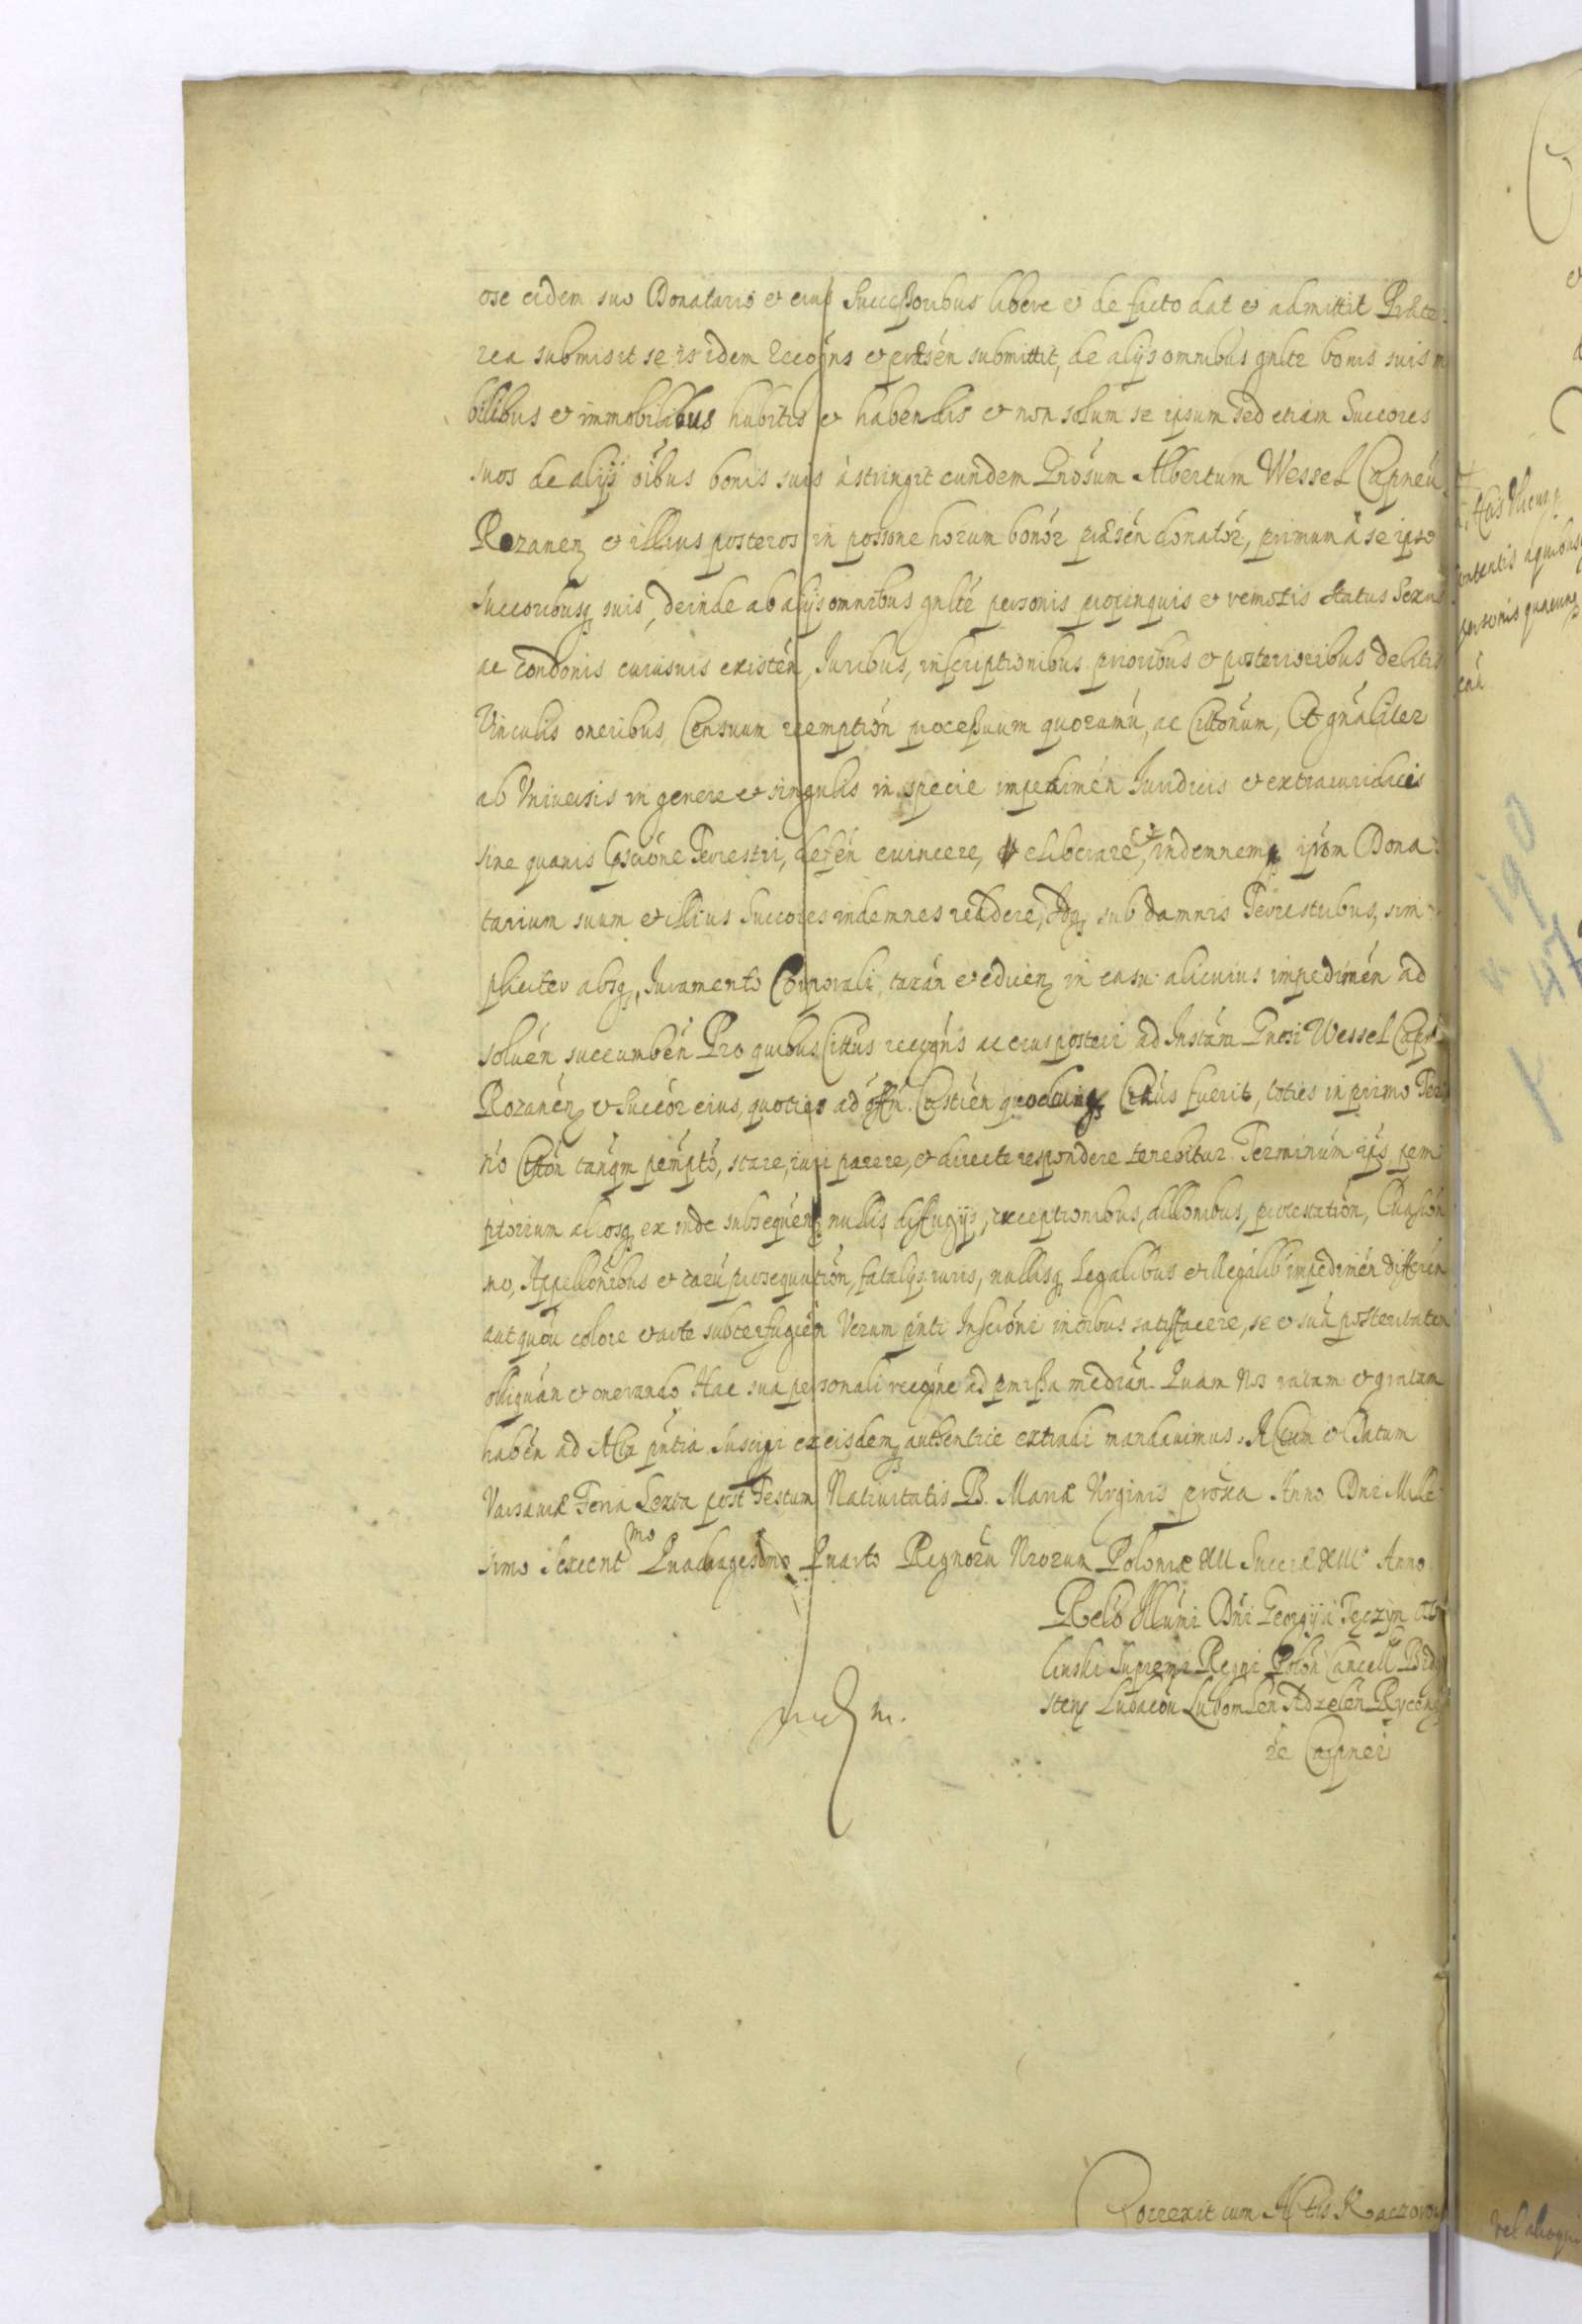 ose eidem suo Donatario et eius Successoribus libere et de facto dat et admittit Præte-
rea submisit se is idem Recogns et præsén submittit, de alijs omnibus gnltr bonis suis m
bilibus et immobilibus habitis et habendis et non solum se ipsum sed etiam Succores
suos de alijs oibus bonis suis astringit eundem Gnosum Albertum Wessel Capneu
Rozanen et illius posteros in possione horum bonór præsén donatór, primum à se ipso
succoribusq suis, deinde ab alijs omnibus gnlte personis propinquis et remotis status Sexus
ac condonis cuiusuis existén, Iuribus, inscriptionibus prioribus et posterioribus debitis
Vinculis oneribus, Censuum reemptión processuum quorumú, ac Cittonum, Et gnaliter
ab Vniuersis in genere et singulis in specie impedimén Iuridicis et extraiuridicis
sine quauis Pscrione Terrestri, defén euincere, eliberare et indemnemq ipsom Dona-
tarium suum et illius Succores indemnes reddere, Idq sub damnis Terrestribus, sim-
pliciter absq Iuramento Corporali taxán et edicen in casu alicuius impedimén ad
soluén succumbén Pro quibus Cittus recogns ac eius posteri ad Instánt Gnosi Wessel Capn
Rozanén et Succór eius, quoties ad offn Castrén quodcunq Cittus fuerit, toties in primo Ter
no Cittón tanqm pemptó, stare, iuri parere, et directe respondere tenebitur. Terminum ips pem
ptorium ac eosq ex inde subsequen nullis diffugijs, exceptionibus, dillonibus, protestatión, Euasión
no, Appellonibus et earú prosequutión, fatalijs iuris, nullisq Legalibus et illegalib impedimén differén
aut quóu colore et arte subterfugién Verum pnti Inscrióni in oibus satisfacere, se et suá posteritatem
obliquán et onerando Hac sua personali recogne ad pmissa medián. Quam Nos ratam et gratam
habén ad Acta pntia suscipi ex eisdemq authentice extradi mandauimus. Actum et Datum
Varsauiæ Feria Sexta post Festum Natiuitatis B. Mariæ Virginis proxa Anno Dni Mille-
simo Sexcentmo Quadragesimo Quarto Regnorú Nrorum Poloniæ XII Sueciæ XIII Anno
Relio Illumi Dni Georgij à Tęczyn Os
linski Supremi Regni Polón Cancell Bidg
sten Lubacou Lubomlen Adzelén Rycen
ze Capnei
Correxit cum Actis Raczow
rel alioqui